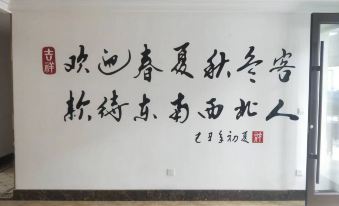 吉祥
欢迎春夏秋冬客
款待东南西北人
己丑年初夏